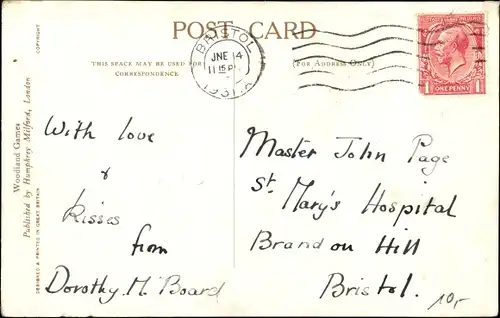 POST CARD
THIS SPACE MAY BE USED FOR
CORRESPONDENCE
(FOR ADDRESS ONLY)
BRISTOL
JNE 14
11 15 PM
1931
ONE PENNY
1 1
With love
&
Kisses
from
Dorothy. M. Board
Master John Page
St. Mary's Hospital
Brandon Hill
Bristol.
10,-
COPYRIGHT
Woodland Games
Published by Humphrey Milford, London
DESIGNED & PRINTED IN GREAT BRITAIN